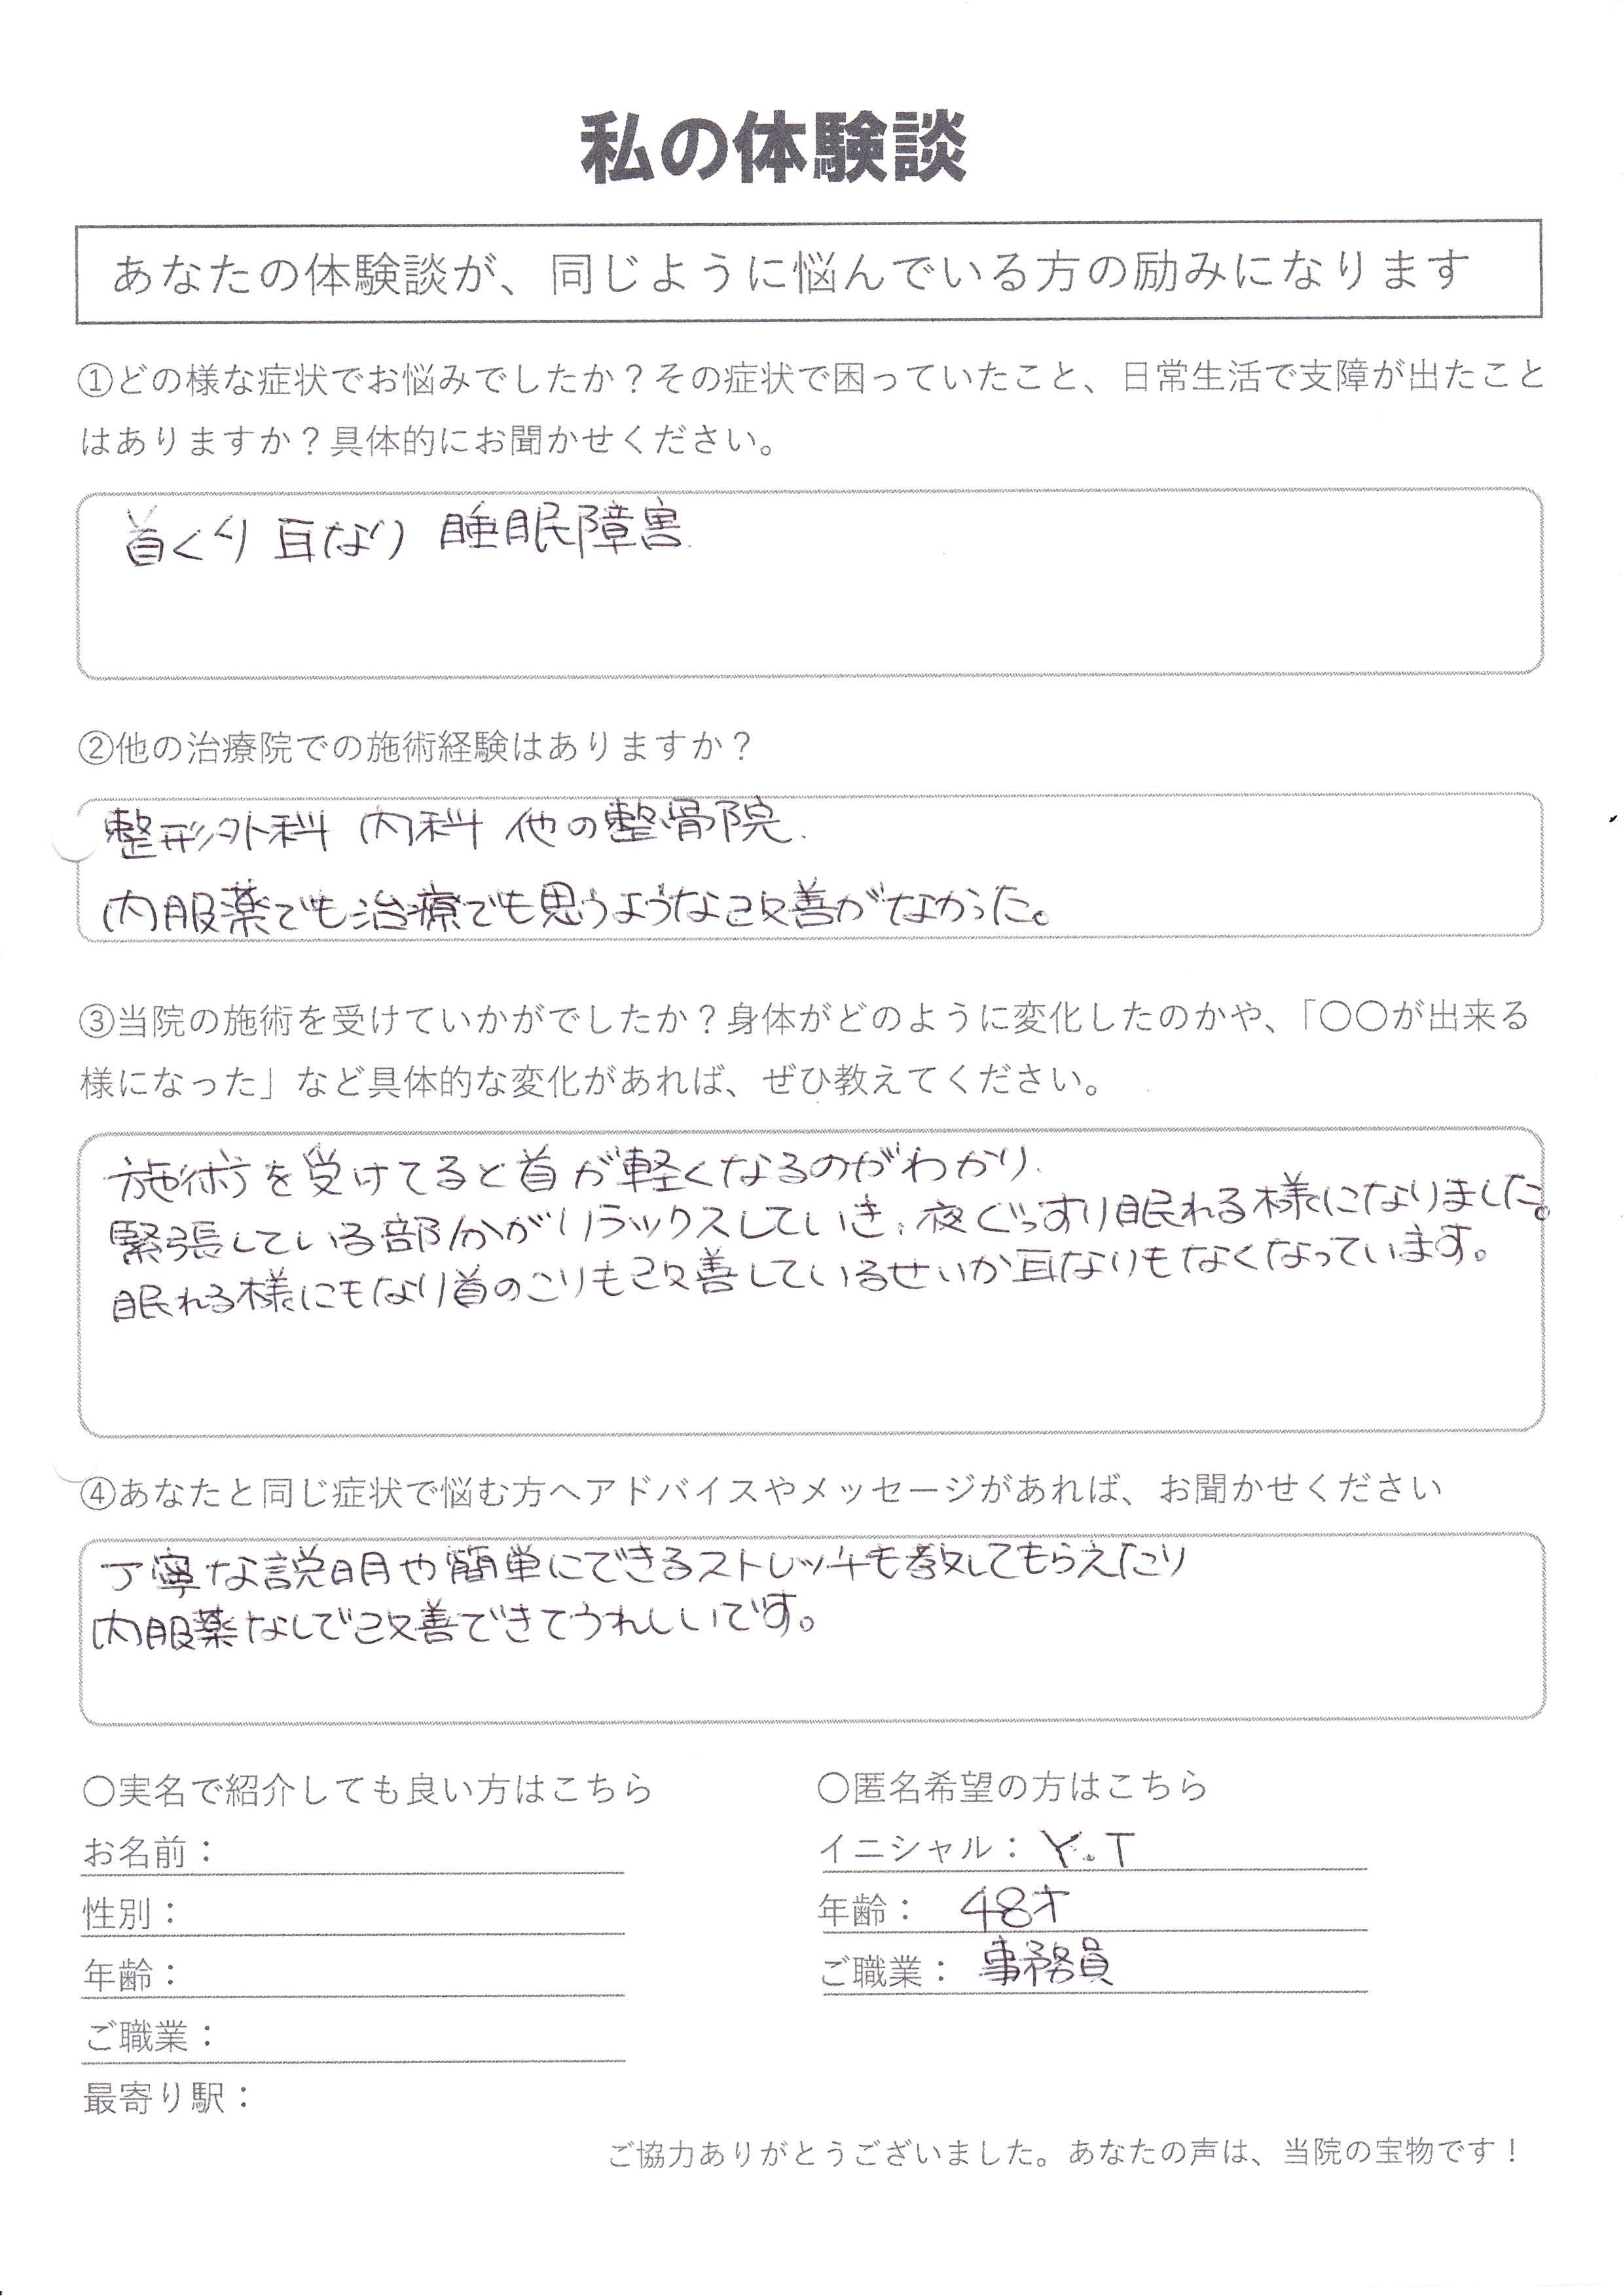 私の体験談
あなたの体験談が、同じように悩んでいる方の励みになります
①どの様な症状でお悩みでしたか？その症状で困っていたこと、日常生活で支障が出たこと
はありますか？具体的にお聞かせください。
首くり 耳なり 睡眠障害.
②他の治療院での施術経験はありますか？
整形外科 内科 他の整骨院.
内服薬でも治療でも思うような改善がなかった。
③当院の施術を受けていかがでしたか？身体がどのように変化したのかや、「〇〇が出来る
様になった」など具体的な変化があれば、ぜひ教えてください。
施術を受けてると首が軽くなるのがわかり.
緊張している部分がリラックスしていき、夜ぐっすり眠れる様になりました。
眠れる様にもなり首のこりも改善しているせいか耳なりもなくなっています。
④あなたと同じ症状で悩む方へアドバイスやメッセージがあれば、お聞かせください
丁寧な説明や簡単にできるストレッチも教えてもらえたり
内服薬なしで改善できてうれしいです。
〇実名で紹介しても良い方はこちら
お名前：
性別：
年齢：
ご職業：
最寄り駅：
〇匿名希望の方はこちら
イニシャル：Y.T
年齢： 48才
ご職業： 事務員
ご協力ありがとうございました。あなたの声は、当院の宝物です！